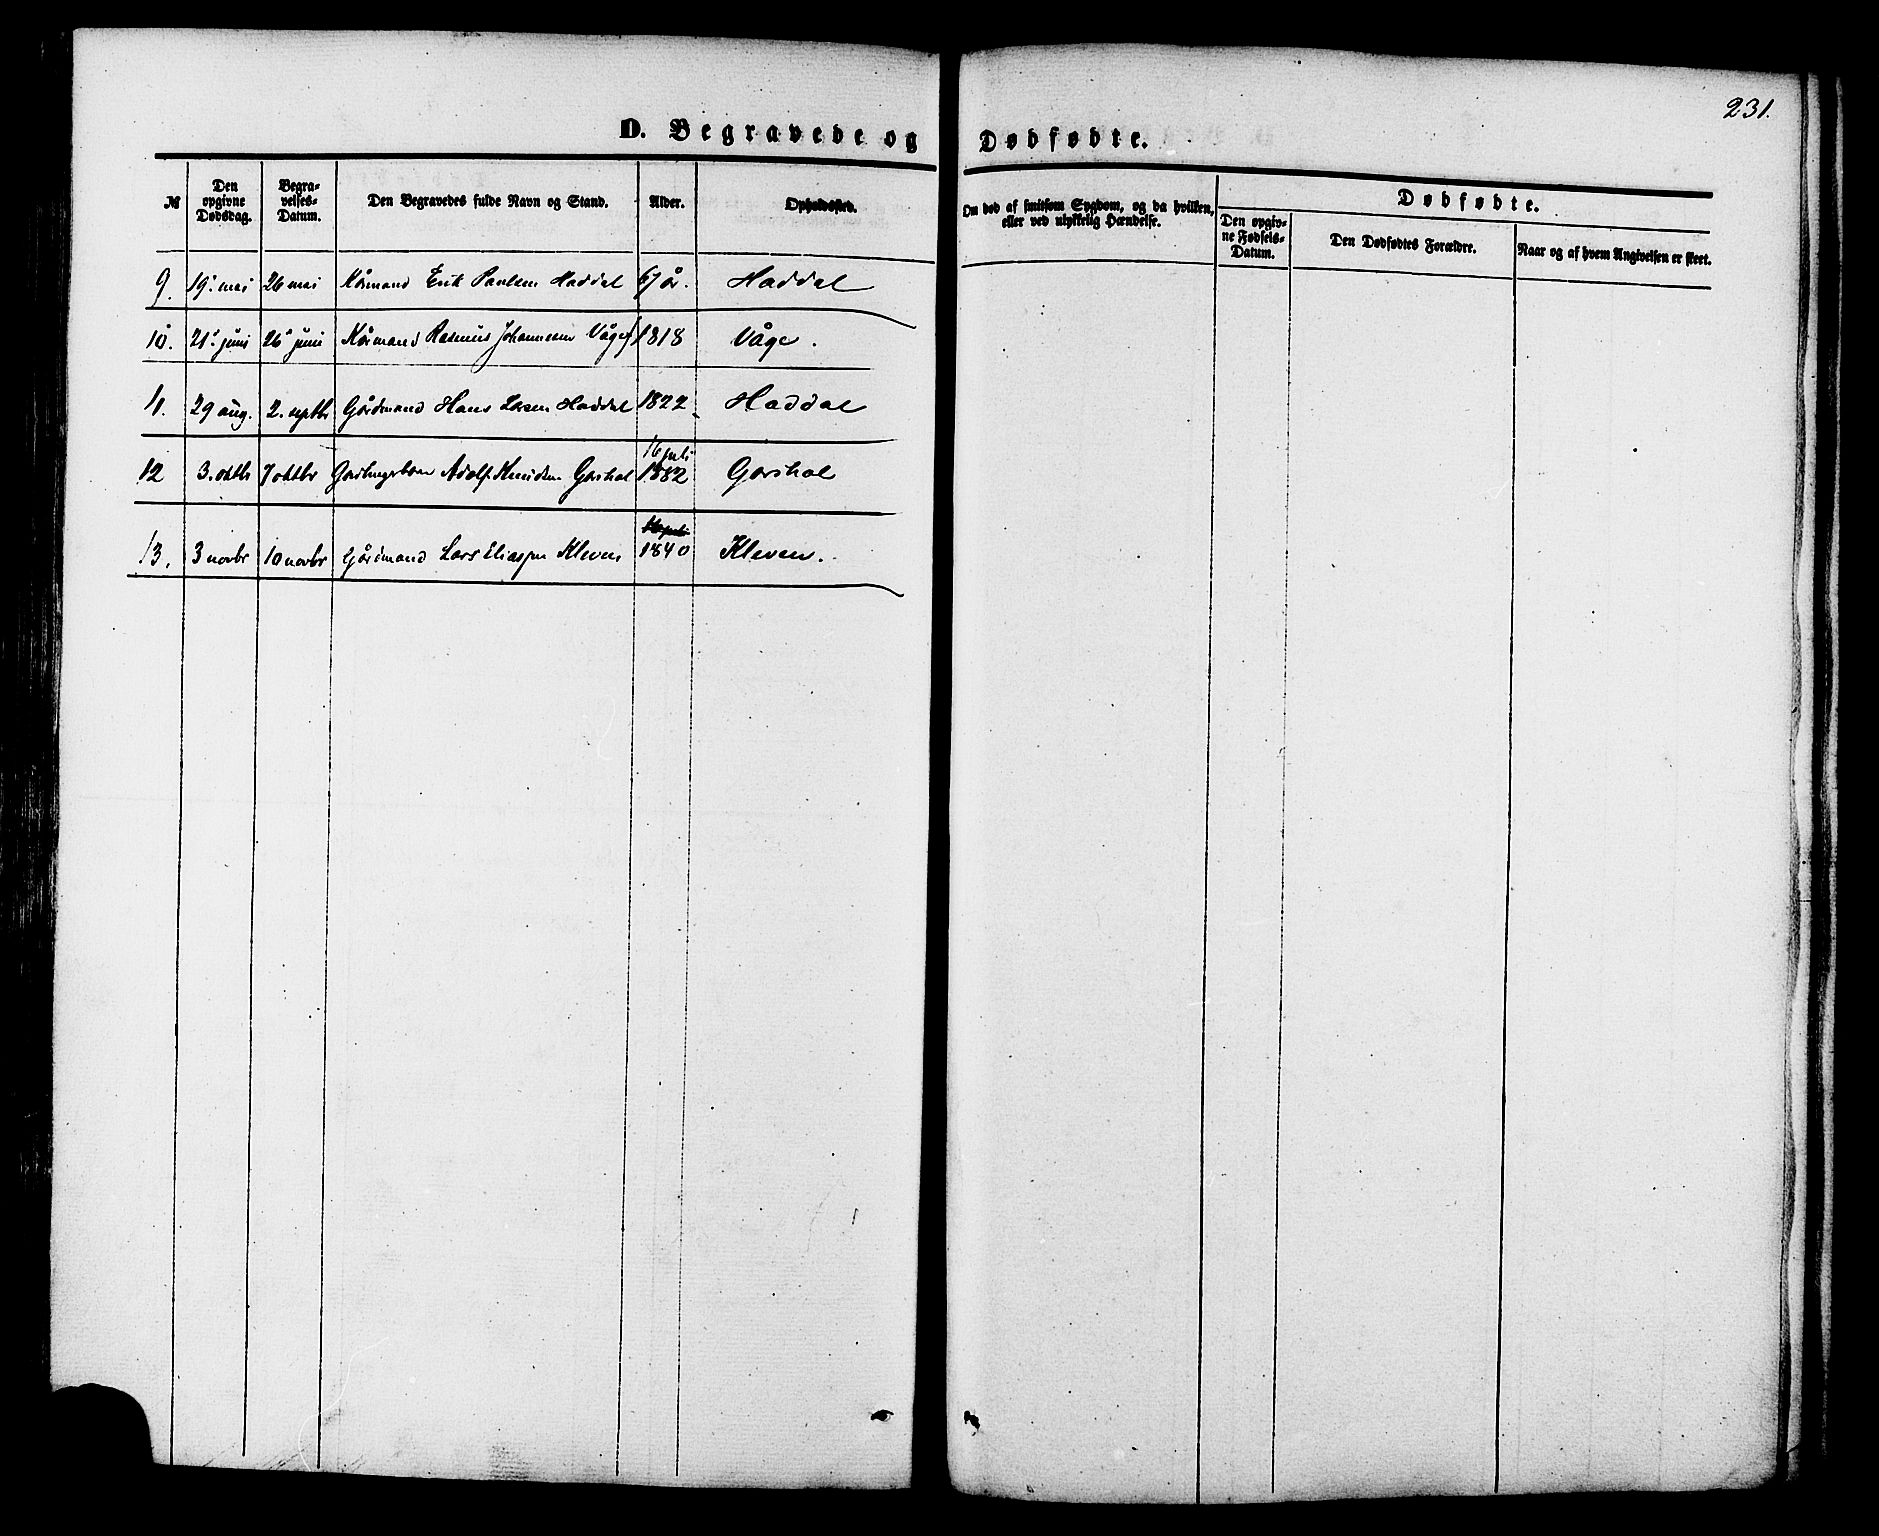 231.
D. Begravede og Dødfødte.
№ Den opgivne Dødsdag. Begravelses-Datum. Den Begravedes fulde Navn og Stand. Alder. Opholdssted. Om død af smitsom Sygdom, og da hvilken, eller ved ulykkelig Hændelse. Dødfødte. Den opgivne Fødsels-Datum. Den Dødfødtes Forældre. Naar og af hvem Angivelsen er skeet.
9. 19. mai 26 mai Kårmand Erik Paulsen Haddal 67 år. Haddal
10. 21. juni 26. juni Kårmand Rasmus Johannesen Våge 1818 Våge.
11. 29 aug. 2. septbr Gårdmand Hans Larsen Haddal 1822 Haddal
12 3. oktbr 7 oktbr Adolf Knudsen Gjerskal 16 juli 1882 Gjerskal
13. 3 novbr 10 novbr Gårdmand Lars Eliassen Kleven 1840 Kleven.